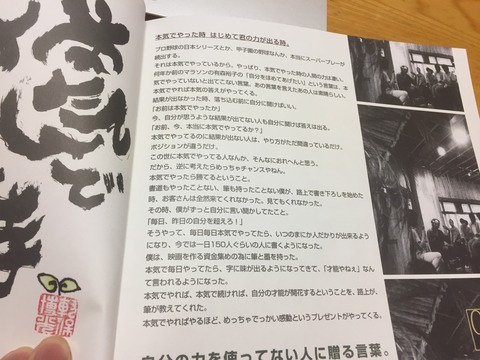 本気でやった時 はじめて君の力が出る時。
プロ野球の日本シリーズとか、甲子園の野球なんか、本当にスーパープレーが
続出する。
それは本気でやっているから、やっぱり、本気でやった時の人間の力は凄い。
何年か前のマラソンの有森裕子の「自分をほめてあげたい」という言葉は、本
気でやっていないと出てこない言葉。あの言葉を言えたあの人は素晴らしい。
本気でやれば本気の答えがやってくる。
結果が出なかった時、落ち込む前に自分に聞けばいい。
「お前は本気でやったか」
今、自分が思うような結果が出てない人も自分に聞けば答えは出る。
「お前、今、本当に本気でやってるか？」
本気でやってるのに結果が出ない人は、やり方がただ間違っているだけ、
ポジションが違うだけ。
この世に本気でやってる人なんか、そんなにおれへんと思う。
だから、逆に考えたらめっちゃチャンスやねん。
本気でやったら勝てるということ。
書道もやったことない、筆も持ったことない僕が、路上で書き下ろしを始めた
時、お客さんは全然来てくれなかった。見てもくれなかった。
その時、僕がずっと自分に言い聞かしてたこと。
「毎日、昨日の自分を超えろ！」
そうやって、毎日毎日本気でやっていたら、いつのまにか人だかりが出来るように
なり、今では一日150人ぐらいの人に書くようになった。
僕は、映画を作る資金集めの為に筆と墨を持った。
本気で毎日やってたら、字に味が出るようになってきて、「才能やねぇ」なん
て言われるようになった。
本気でやれば、本気で続ければ、自分の才能が開花するということを、路上が、
筆が教えてくれた。
本気でやればやるほど、めっちゃでっかい感動というプレゼントがやってくる。
自分の力を使ってない人に贈る言葉。